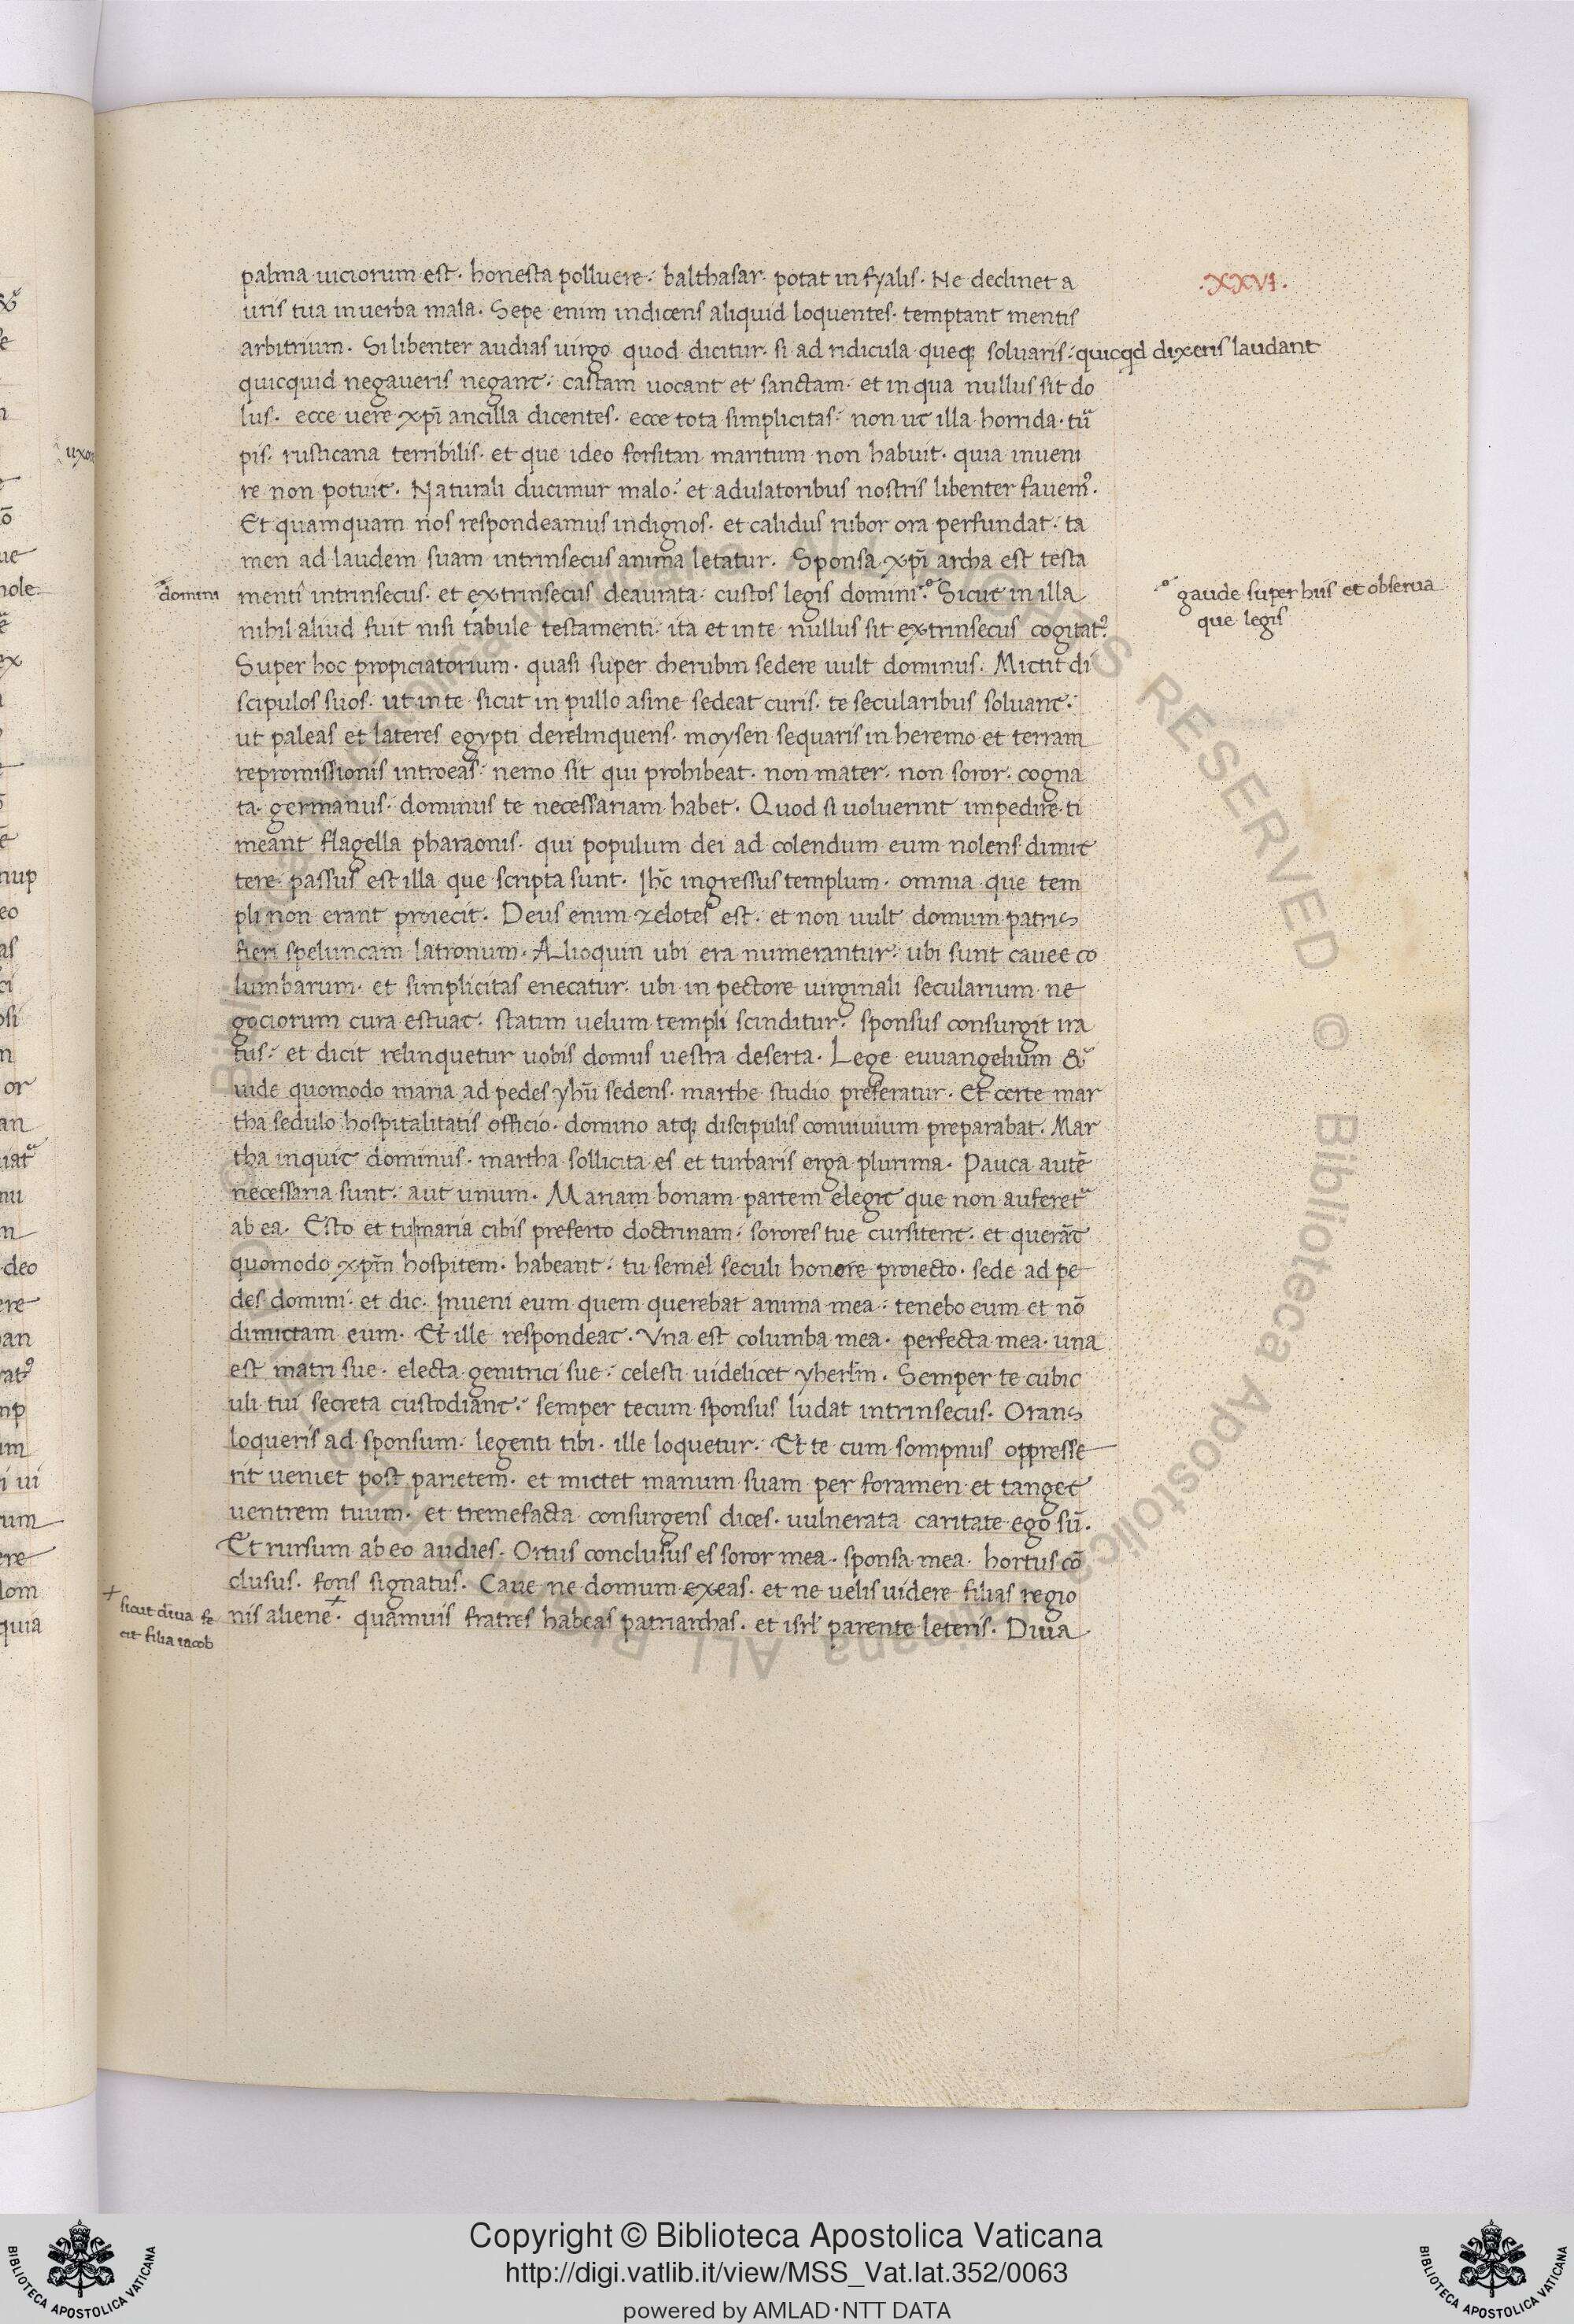 palma uiciorum est. honesta polluere: balthasar potat in fyalis. Ne declinet a
.XXVI.
uris tua in uerba mala. Sepe enim indicens aliquid loquentes. temptant mentis
arbitrium. Si libenter audias uirgo quod dicitur. si ad ridicula queq; soluaris: quicqd dixeris laudant
quicquid negaueris negant: castam uocant et sanctam. et in qua nullus sit do
lus. ecce uere xp̄i ancilla dicentes. ecce tota simplicitas: non ut illa horrida. tu
pis. rusticana terribilis. et que ideo forsitan maritum non habuit. quia inueni
re non potuit. Naturali ducimur malo: et adulatoribus nostris libenter fauem9.
Et quamquam nos respondeamus indignos. et calidus rubor ora perfundat. ta
men ad laudem suam intrinsecus anima letatur. Sponsa xp̄i archa est testa
domini
menti intrinsecus. et extrinsecus deaurata: custos legis domini. Sicut in illa
gaude super hiis et obserua
que legis
nihil aliud fuit nisi tabule testamenti: ita et in te nullus sit extrinsecus cogitat9.
Super hoc propiciatorium. quasi super cherubin sedere uult dominus. Mictit di
scipulos suos. ut in te sicut in pullo asine sedeat curis. te secularibus soluant:
ut paleas et lateres egypti derelinquens. moysen sequaris in heremo et terram
repromissionis introeas: nemo sit qui prohibeat. non mater. non soror. cogna
ta. germanus. dominus te necessariam habet. Quod si uoluerint impedire. ti
meant flagella pharaonis. qui populum dei ad colendum eum nolens dimit
tere. passus est illa que scripta sunt. Ihc̄ ingressus templum. omnia que tem
pli non erant proiecit. Deus enim zelotes est. et non uult domum patris
fieri speluncam latronum. Alioquin ubi era numerantur: ubi sunt cauee co
lumbarum. et simplicitas enecatur. ubi in pectore uirginali secularium ne
gociorum cura estuat. statim uelum templi scinditur: sponsus consurgit ira
tus: et dicit relinquetur uobis domus uestra deserta. Lege euuangelium &
uide quomodo maria ad pedes yhū sedens. marthe studio preferatur. Et certe mar
tha sedulo hospitalitatis officio. domino atq; discipulis conuiuium preparabat. Mar
tha inquit dominus. martha sollicita es et turbaris erga plurima. Pauca autē
necessaria sunt. aut unum. Mariam bonam partem elegit que non auferet
ab ea. Esto et tu maria cibis preferto doctrinam: sorores tue cursitent. et querāt
quomodo xpm̄ hospitem. habeant: tu semel seculi honore proiecto. sede ad pe
des domini. et dic. Inueni eum quem querebat anima mea: tenebo eum et nō
dimictam eum. Et ille respondeat. Vna est columba mea. perfecta mea. una
est matri sue. electa genitrici sue: celesti uidelicet yherlm̄. Semper te cubic
uli tui secreta custodiant: semper tecum sponsus ludat intrinsecus. Orans
loqueris ad sponsum: legenti tibi. ille loquetur. Et te cum sompnus oppresse
rit ueniet post parietem. et mictet manum suam per foramen et tanget
uentrem tuum. et tremefacta consurgens dices. uulnerata caritate ego sū.
Et rursum ab eo audies. Ortus conclusus es soror mea. sponsa mea. hortus cō
clusus. fons signatus. Caue ne domum exeas. et ne uelis uidere filias regio
+ sicut diuia fe
cit filia iacob
nis aliene+. quamuis fratres habeas patriarchas. et isrl̄ parente leteris. Diua
Copyright © Biblioteca Apostolica Vaticana
http://digi.vatlib.it/view/MSS_Vat.lat.352/0063
powered by AMLAD·NTT DATA
BIBLIOTECA APOSTOLICA VATICANA
BIBLIOTECA APOSTOLICA VATICANA